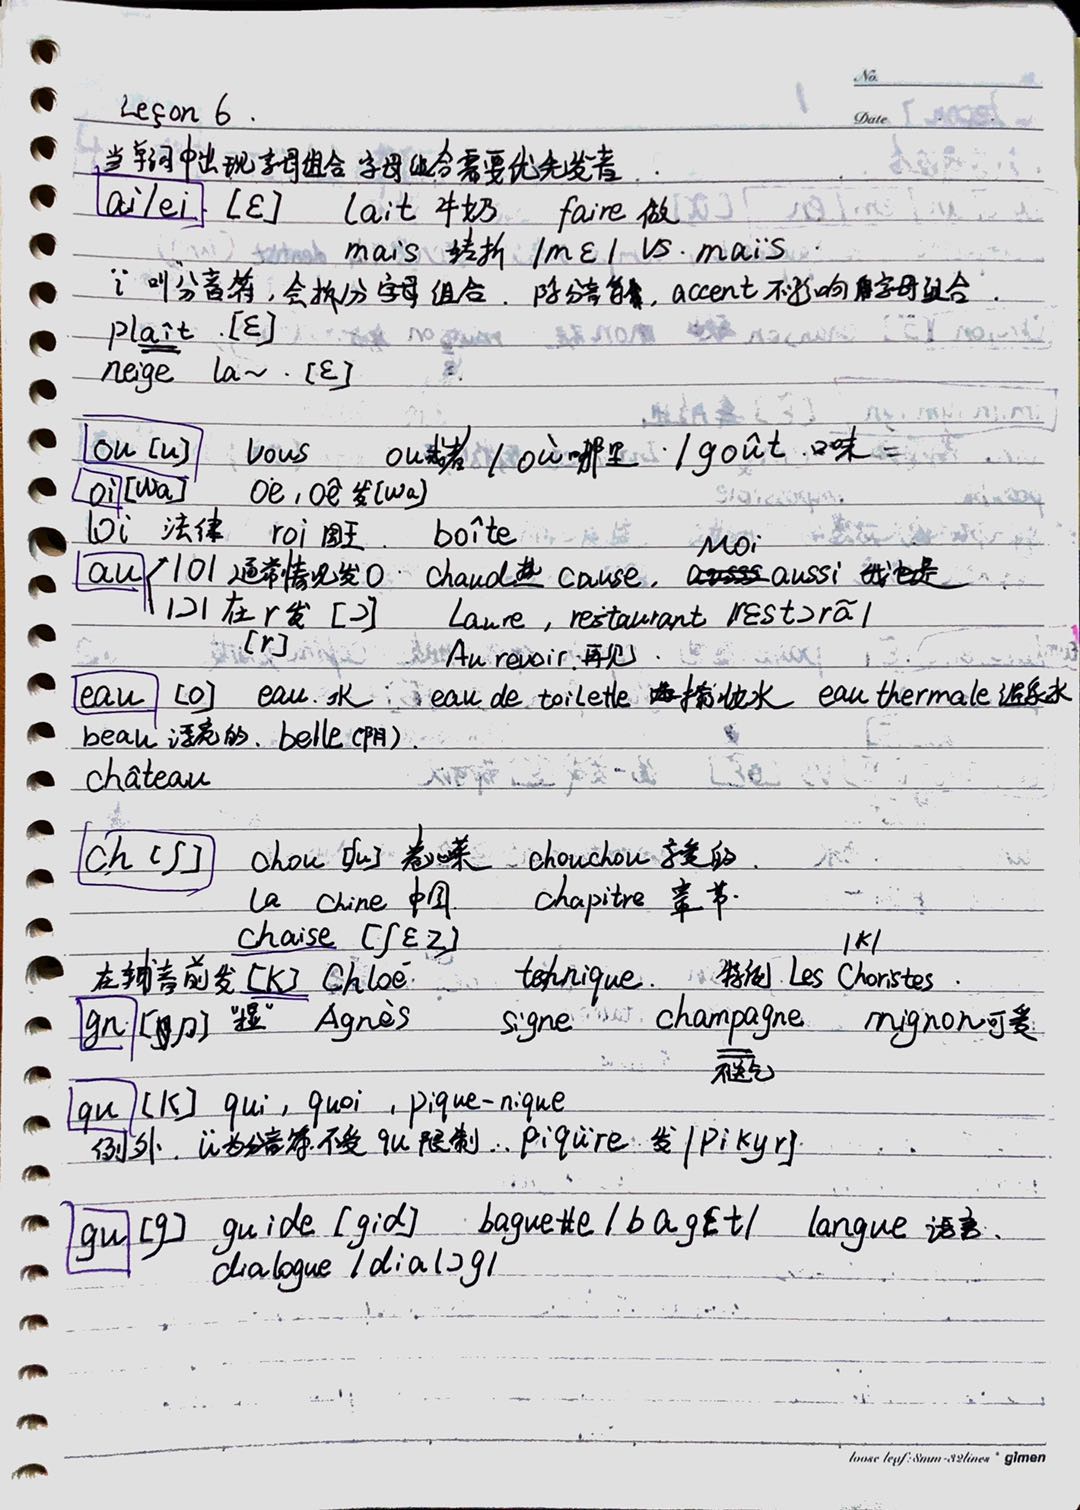 No.
Date
Leçon 6.
当单词中出现字母组合 字母组合需要优先发音.
ai/ei [ɛ] lait 牛奶 faire 做
mais 转折 /mɛ/ VS. maïs.
ï 叫分音符, 会拆分字母组合. 除分音符, accent 不影响字母组合.
plaît [ɛ]
neige la~. [ɛ]
ou [u] vous ou或者 / où 哪里 / goût 口味
oi [wa] oe, oê 发[wa]
loi 法律 roi 国王 boîte
Moi
au /o/ 通常情况发 o. chaud 热 cause, aussi 我也是
/ɔ/ 在 r 发 [ɔ] Laure, restaurant /rɛstɔrã/
[r] Au revoir 再见.
eau [o] eau 水 eau de toilette 妆水 eau thermale 温泉水
beau 漂亮的. belle (阴).
château
ch [ʃ] chou [ʃu] 卷心菜 chouchou 宠爱的.
la chine 中国 chapitre 章节.
chaise [ʃɛz] /k/
在辅音前发 [K] Chloé technique 特例 Les Choristes.
gn [ɲ] Agnès signe champagne mignon 可爱
不送气
qu [K] qui, quoi, pique-nique
例外. ü为分音符 不受 qu 限制.. piqüre 发 /pikyr]
gu [g] guide [gid] baguette /bagɛt/ langue 语言.
dialogue /dialɔg/
loose leaf: 8mm-32lines * gimen